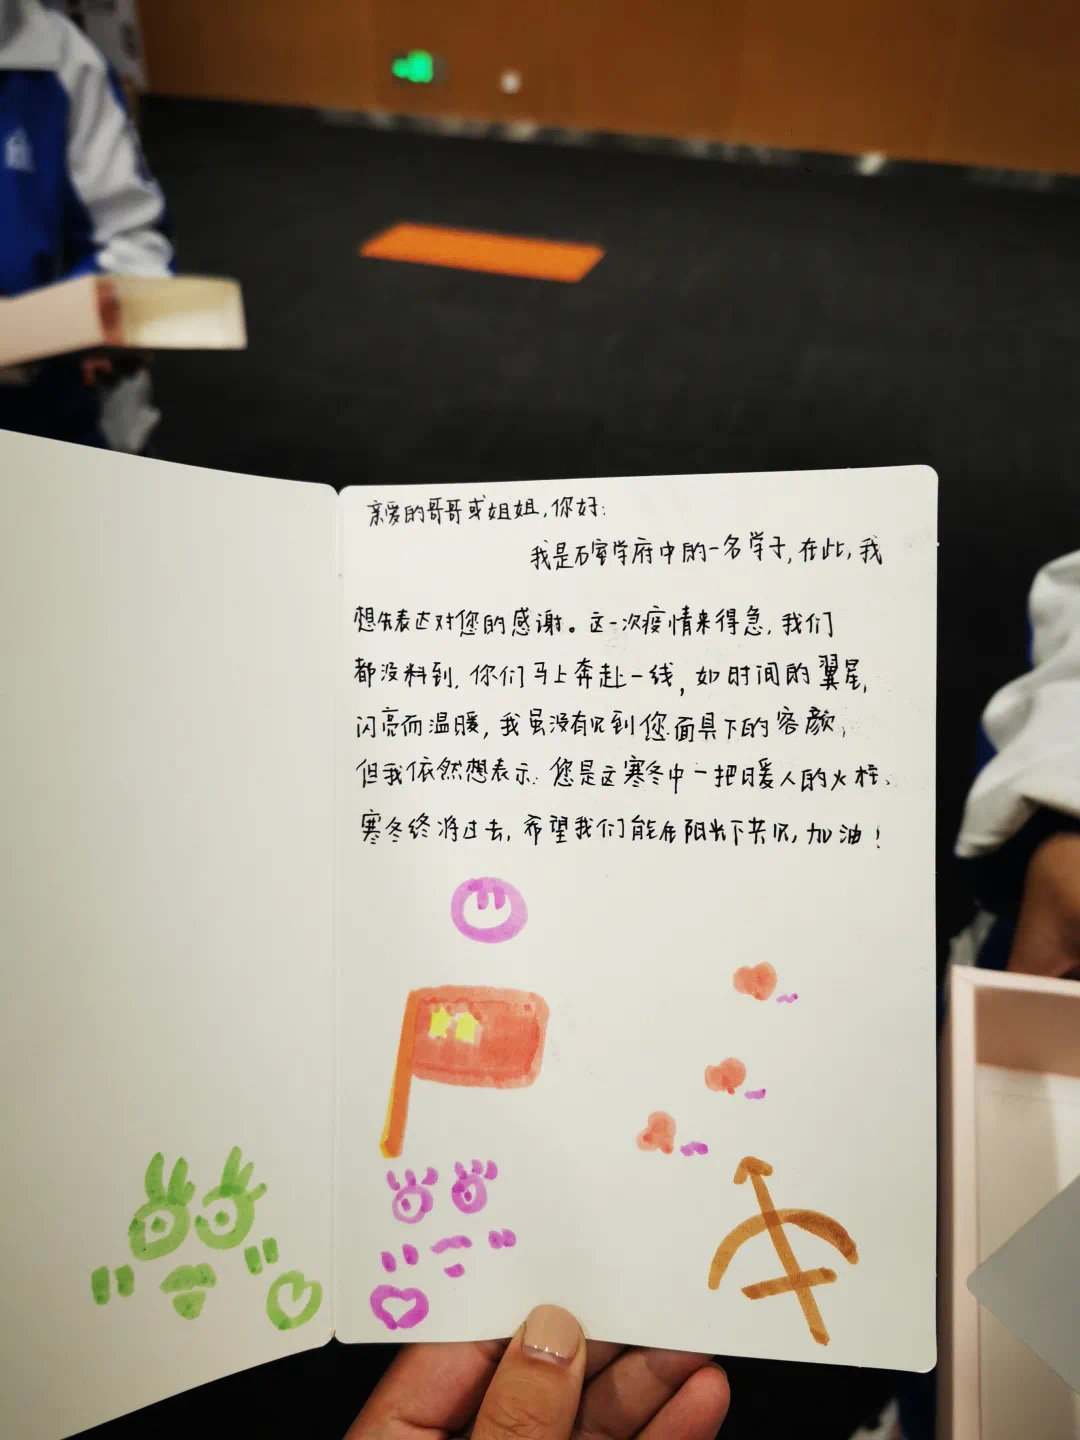 亲爱的哥哥或姐姐，你好：
我是石室学府中的一名学子，在此，我
想先表达对您的感谢。这一次疫情来得急，我们
都没料到，你们马上奔赴一线，如时间的翼星，
闪亮而温暖，我虽没有见到您面具下的容颜，
但我依然想表示，您是这寒冬中一把暖人的火柱，
寒冬终将过去，希望我们能在阳光下共见，加油！